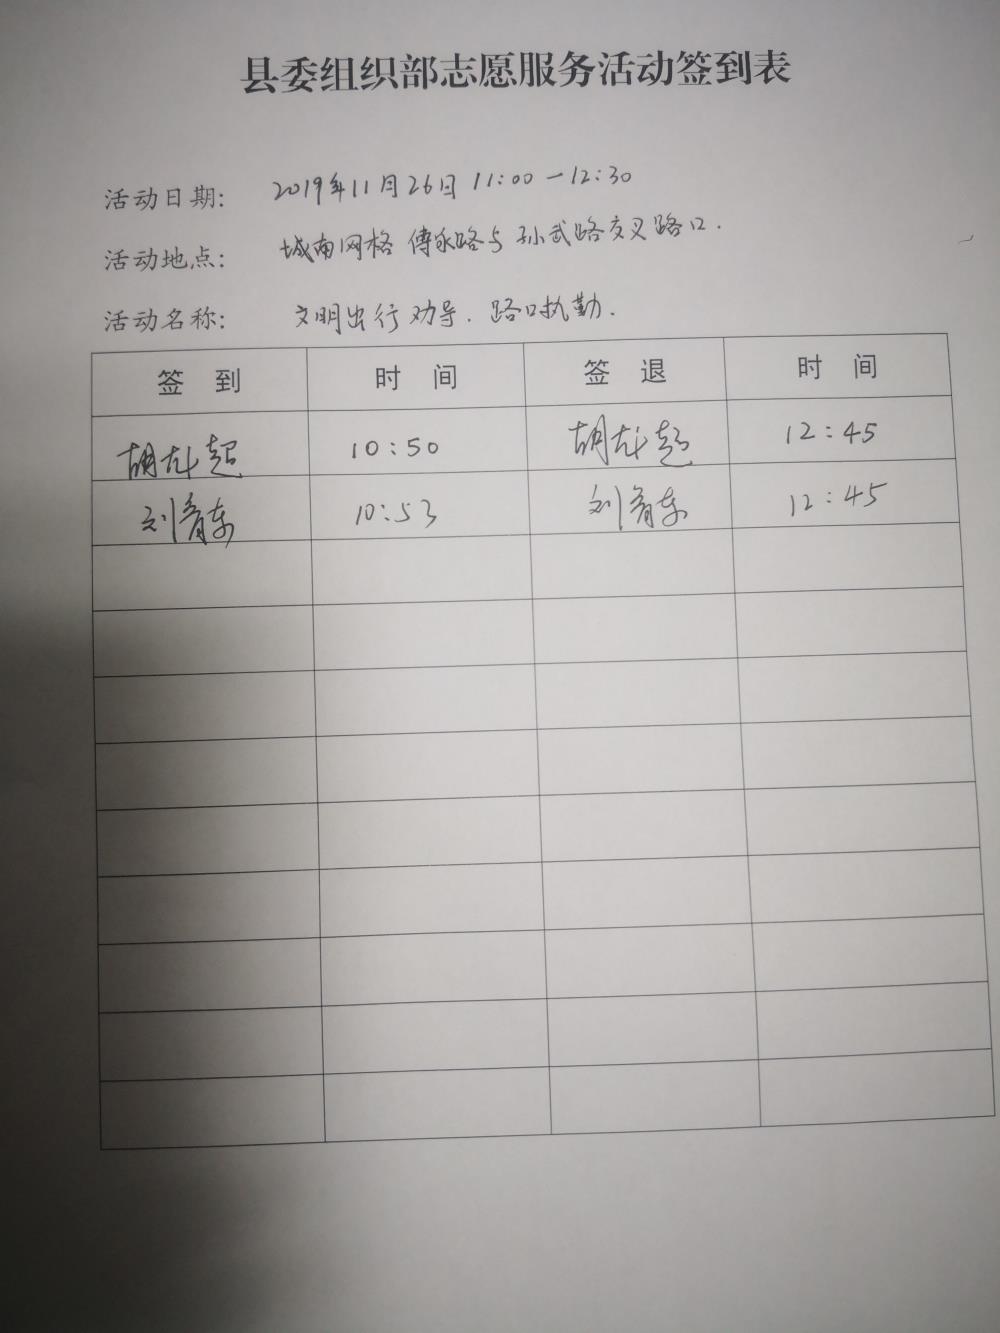 县委组织部志愿服务活动签到表
活动日期: 2019年11月26日 11:00—12:30
活动地点: 城南网格 傅永路与孙武路交叉路口.
活动名称: 文明出行劝导. 路口执勤.
签 到 时 间 签 退 时 间
胡 超 10:50 胡 超 12:45
刘 东 10:53 刘 东 12:45